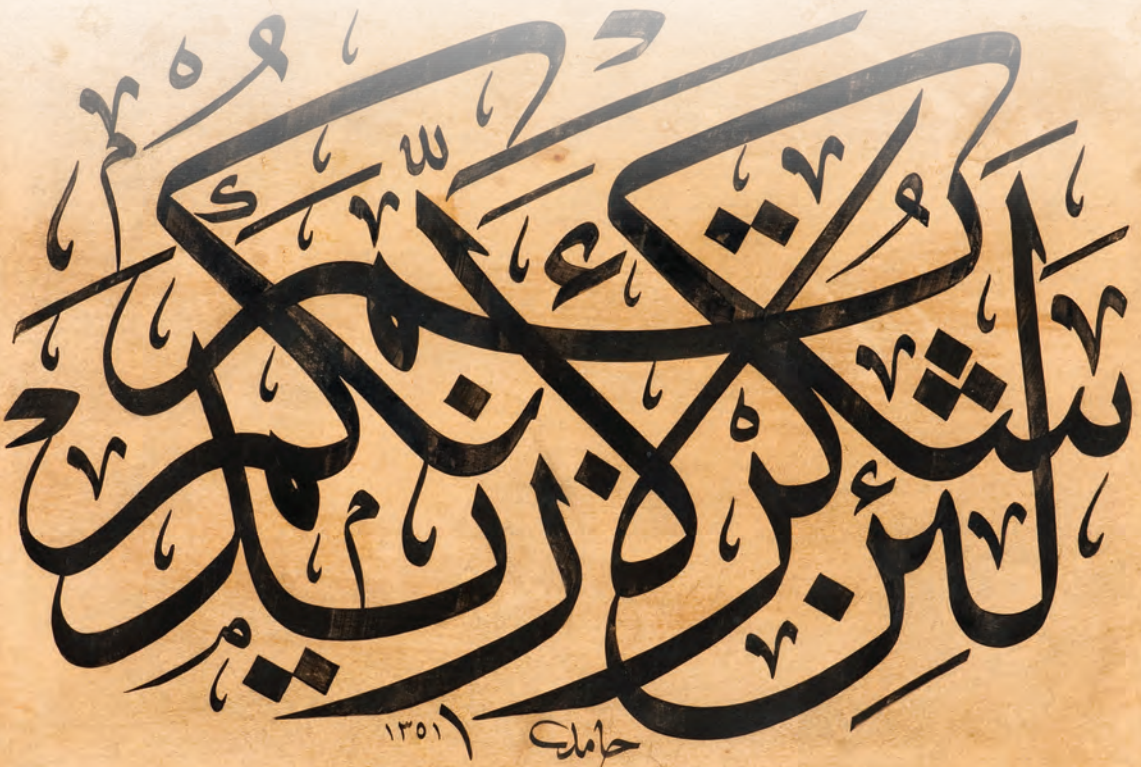 لَئِن شَكَرْتُمْ لَأَزِيدَنَّكُمْ
حامد ١٣٥١